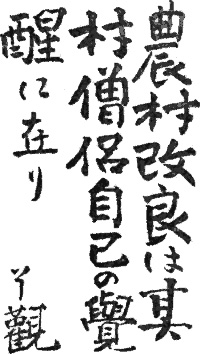 農村改良は其
村僧侶自己の覺
醒に在り
觀